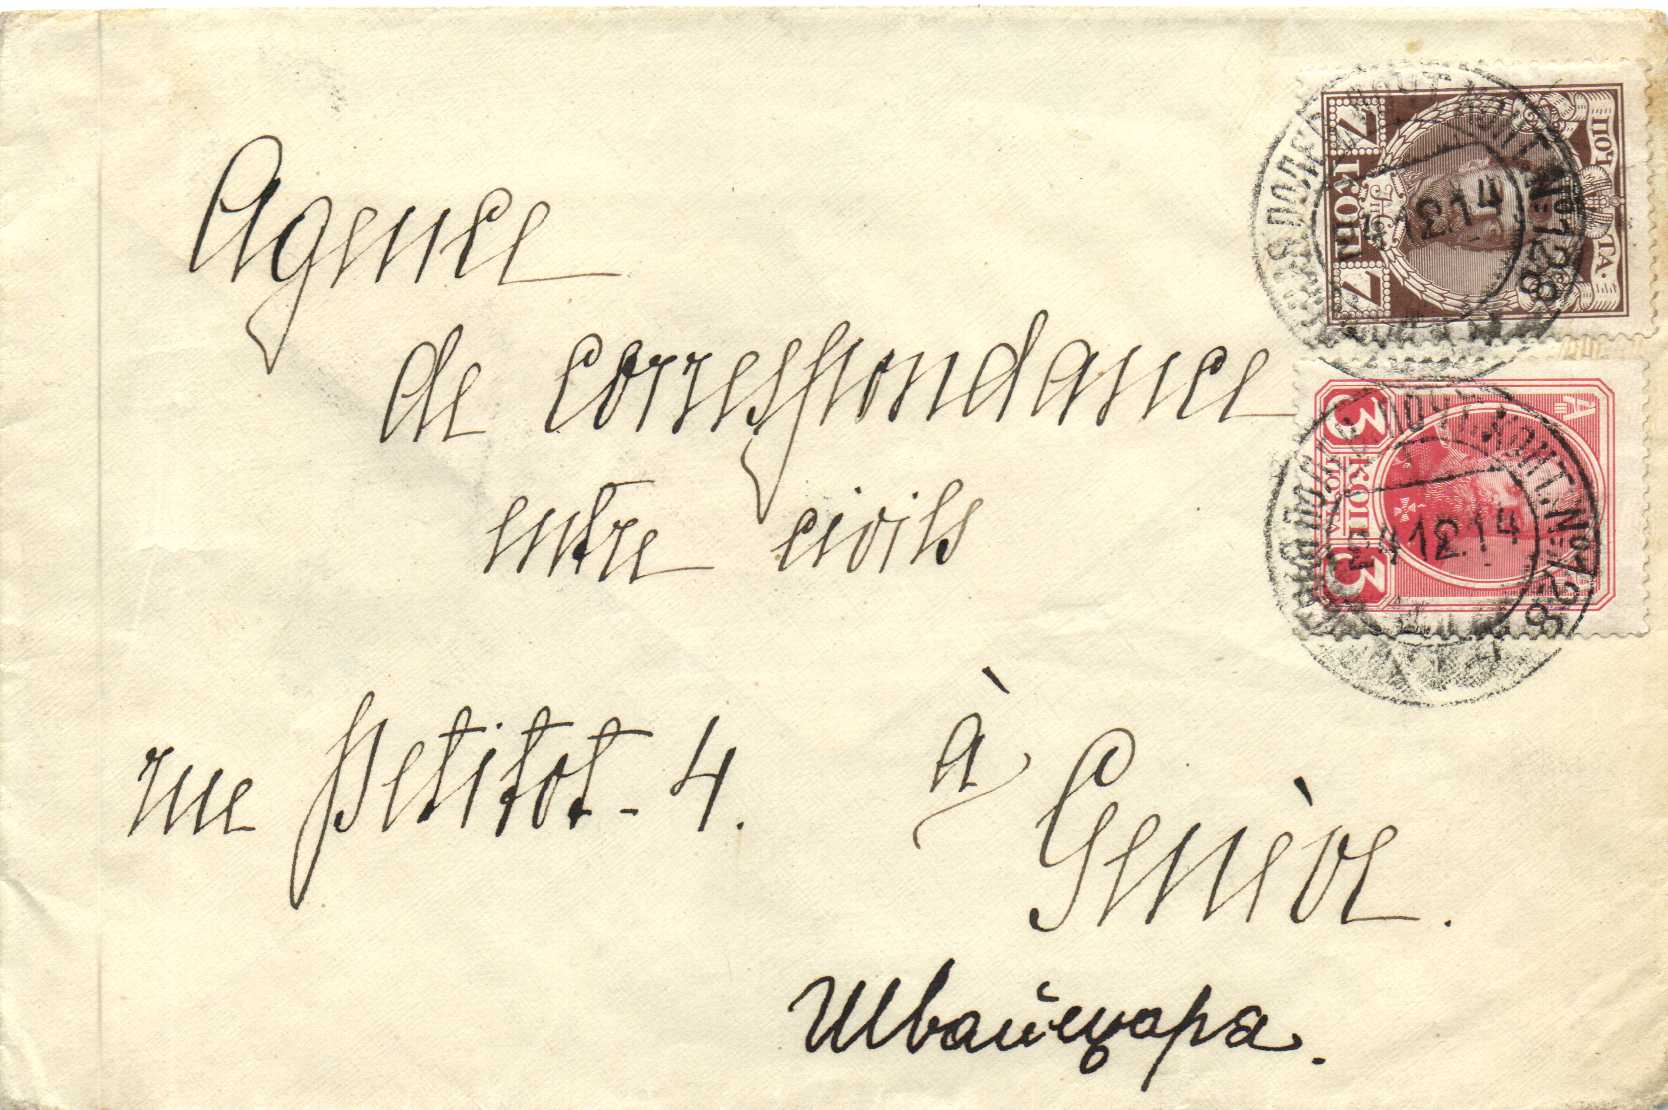 Agence
de correspondance
entre civils
rue Petitot - 4.
à
Genève.
Швайцара.
ПОЧТА
7 КОП 7
4.12.14
ПОЧТ. КОНТ. №128
3 КОП 3
4.12.14
ПОЧТ. КОНТ. №128